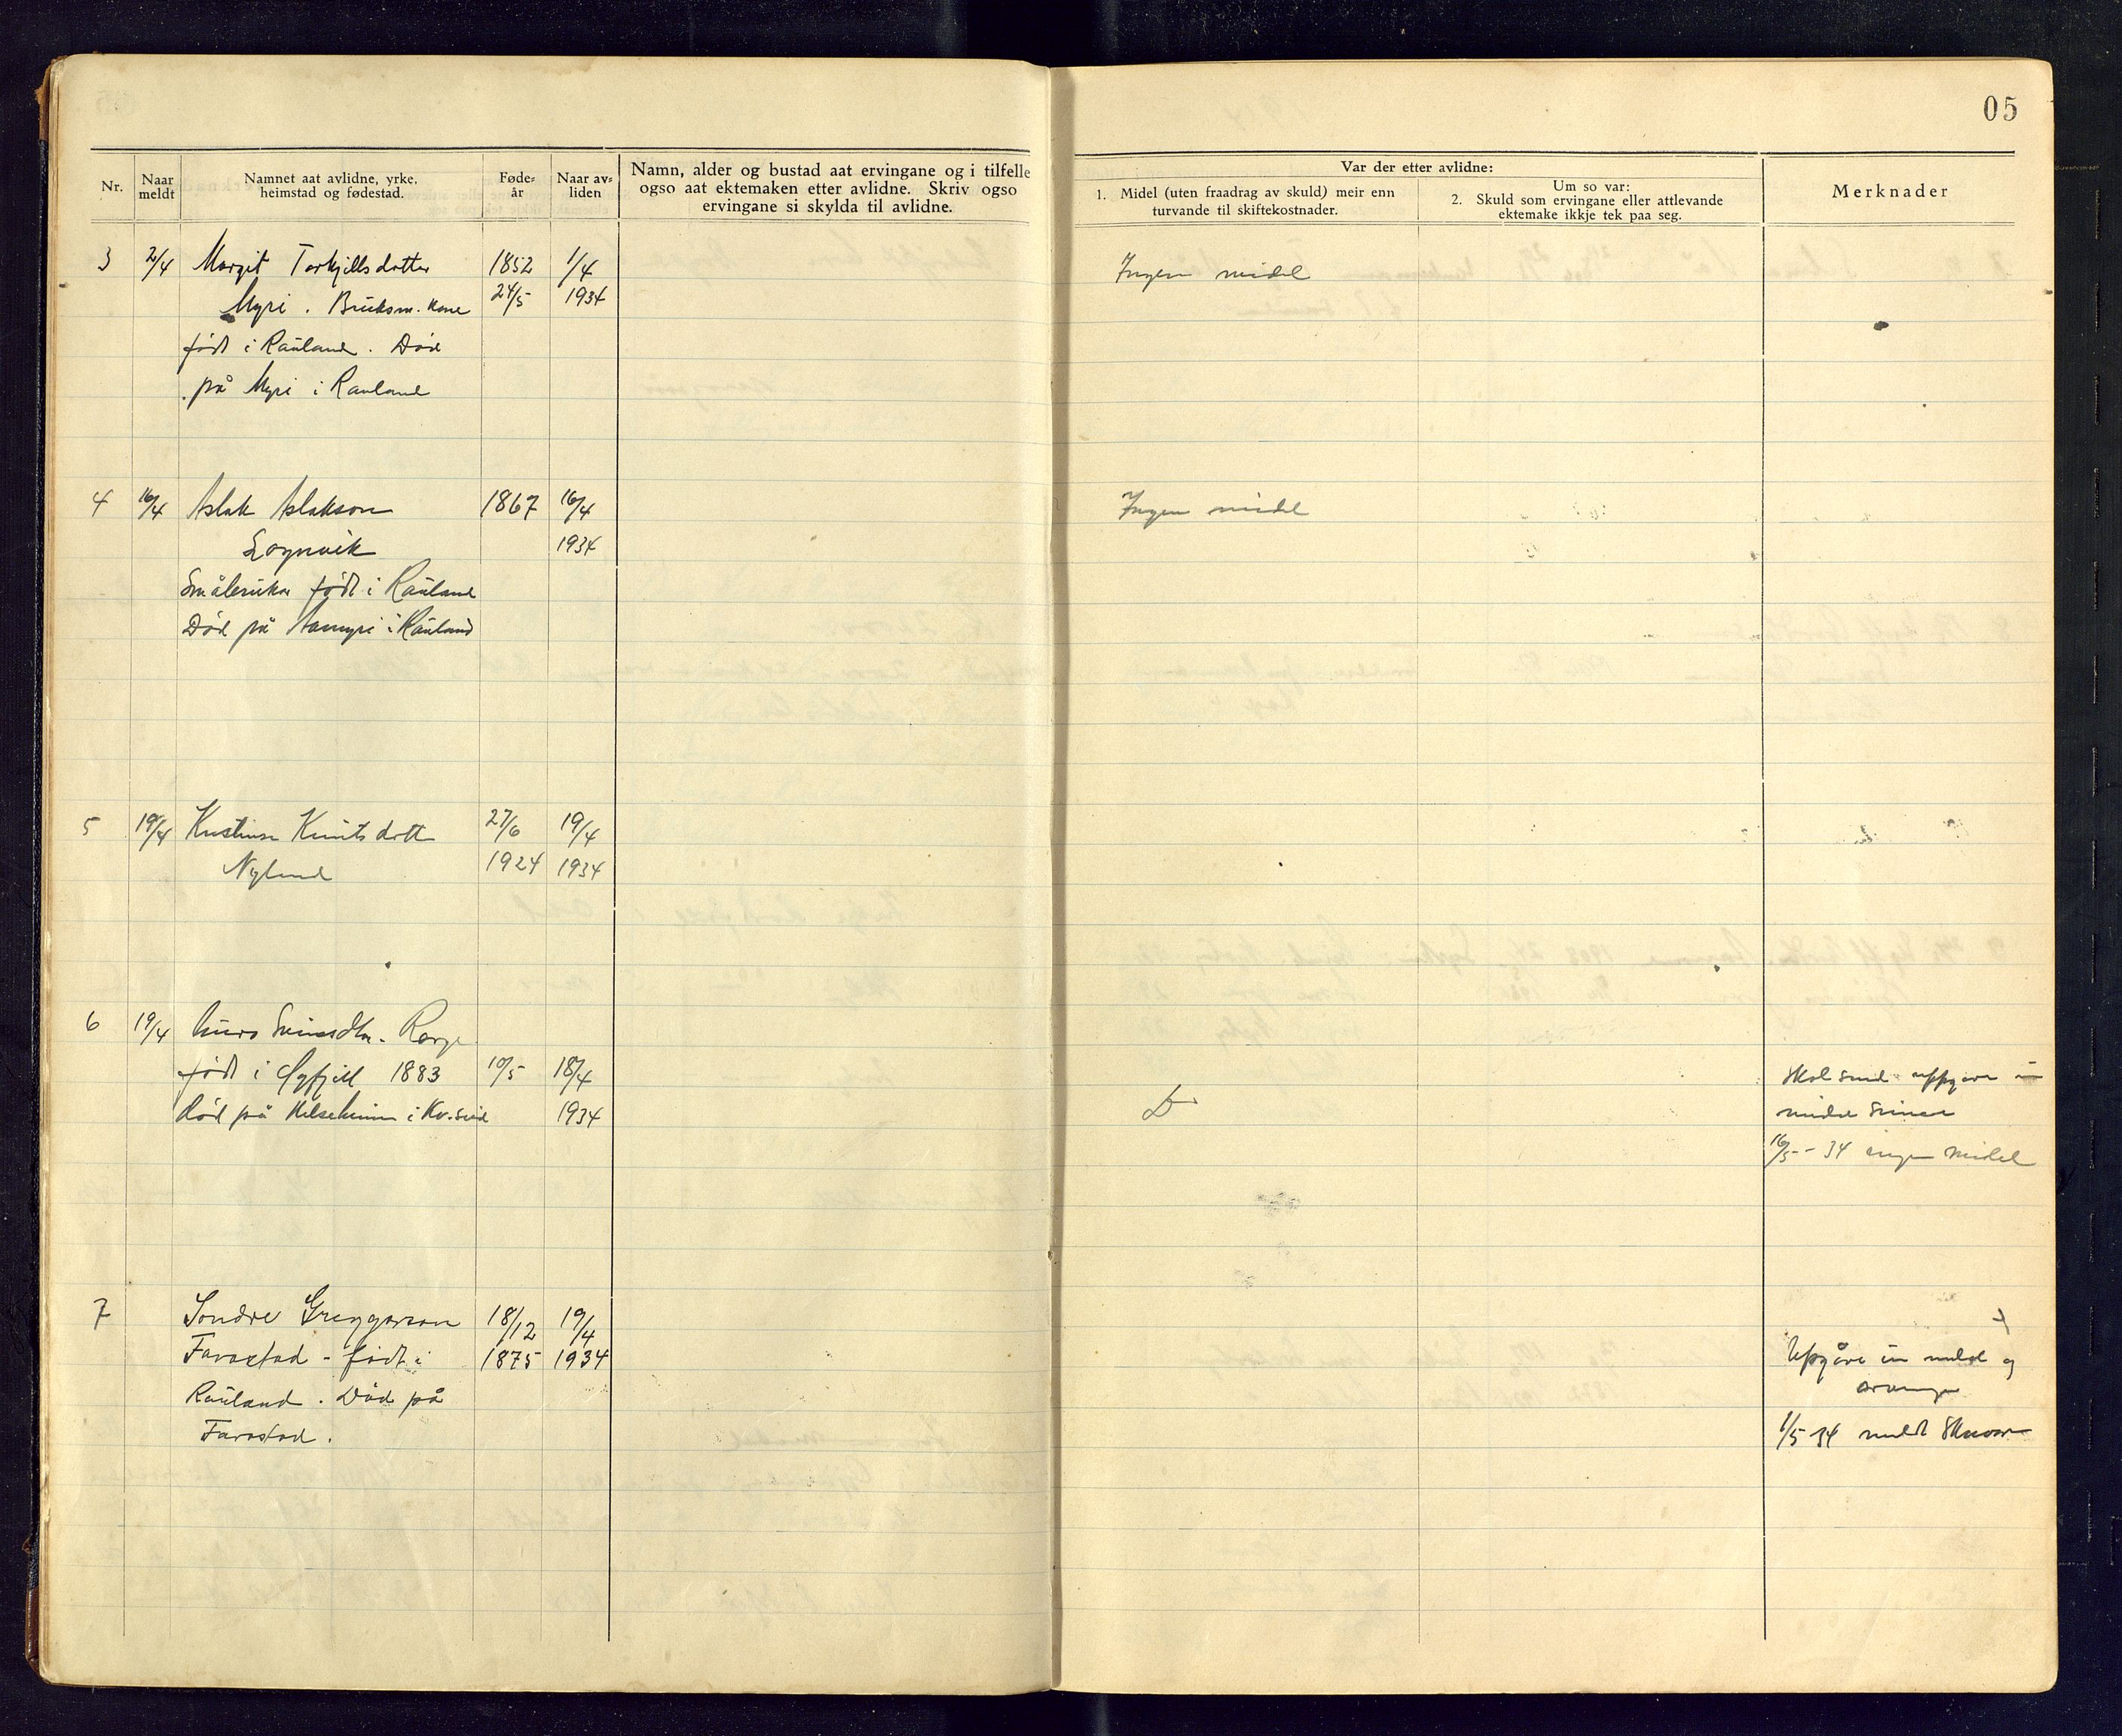 05
Nr.
Naar meldt
Namnet aat avlidne, yrke, heimstad og fødestad.
Føde-år
Naar av-liden
Namn, alder og bustad aat ervingane og i tilfelle
ogso aat ektemaken etter avlidne. Skriv ogso
ervingane si skylda til avlidne.
Var der etter avlidne:
1. Midel (uten fraadrag av skuld) meir enn
turvande til skiftekostnader.
Um so var:
2. Skuld som ervingane eller attlevande
ektemake ikkje tek paa seg.
Merknader
3 2/4 Margit Torkjillsdotter 1852 1/4 Ingen midel
Myri. Bruksm. kone 24/5 1934
født i Rauland. Død
på Myri i Rauland
4 16/4 Aslak Aslakson 1867 16/4 Ingen midel
Lognvik 1934
Småbrukar født i Rauland
Død på i Rauland
5 19/4 Knutsdott 27/6 19/4
Nylund 1924 1934
6 19/4
født i 1883 10/5 18/4
død på i 1934
midel
16/5 - 34 ingen midel
7 Sondre Greggarson 18/12 19/4
Farastad - født i 1875 1934
Rauland. Død på
Farastad.
Uppgåve um midel og
1/5 34 meldt